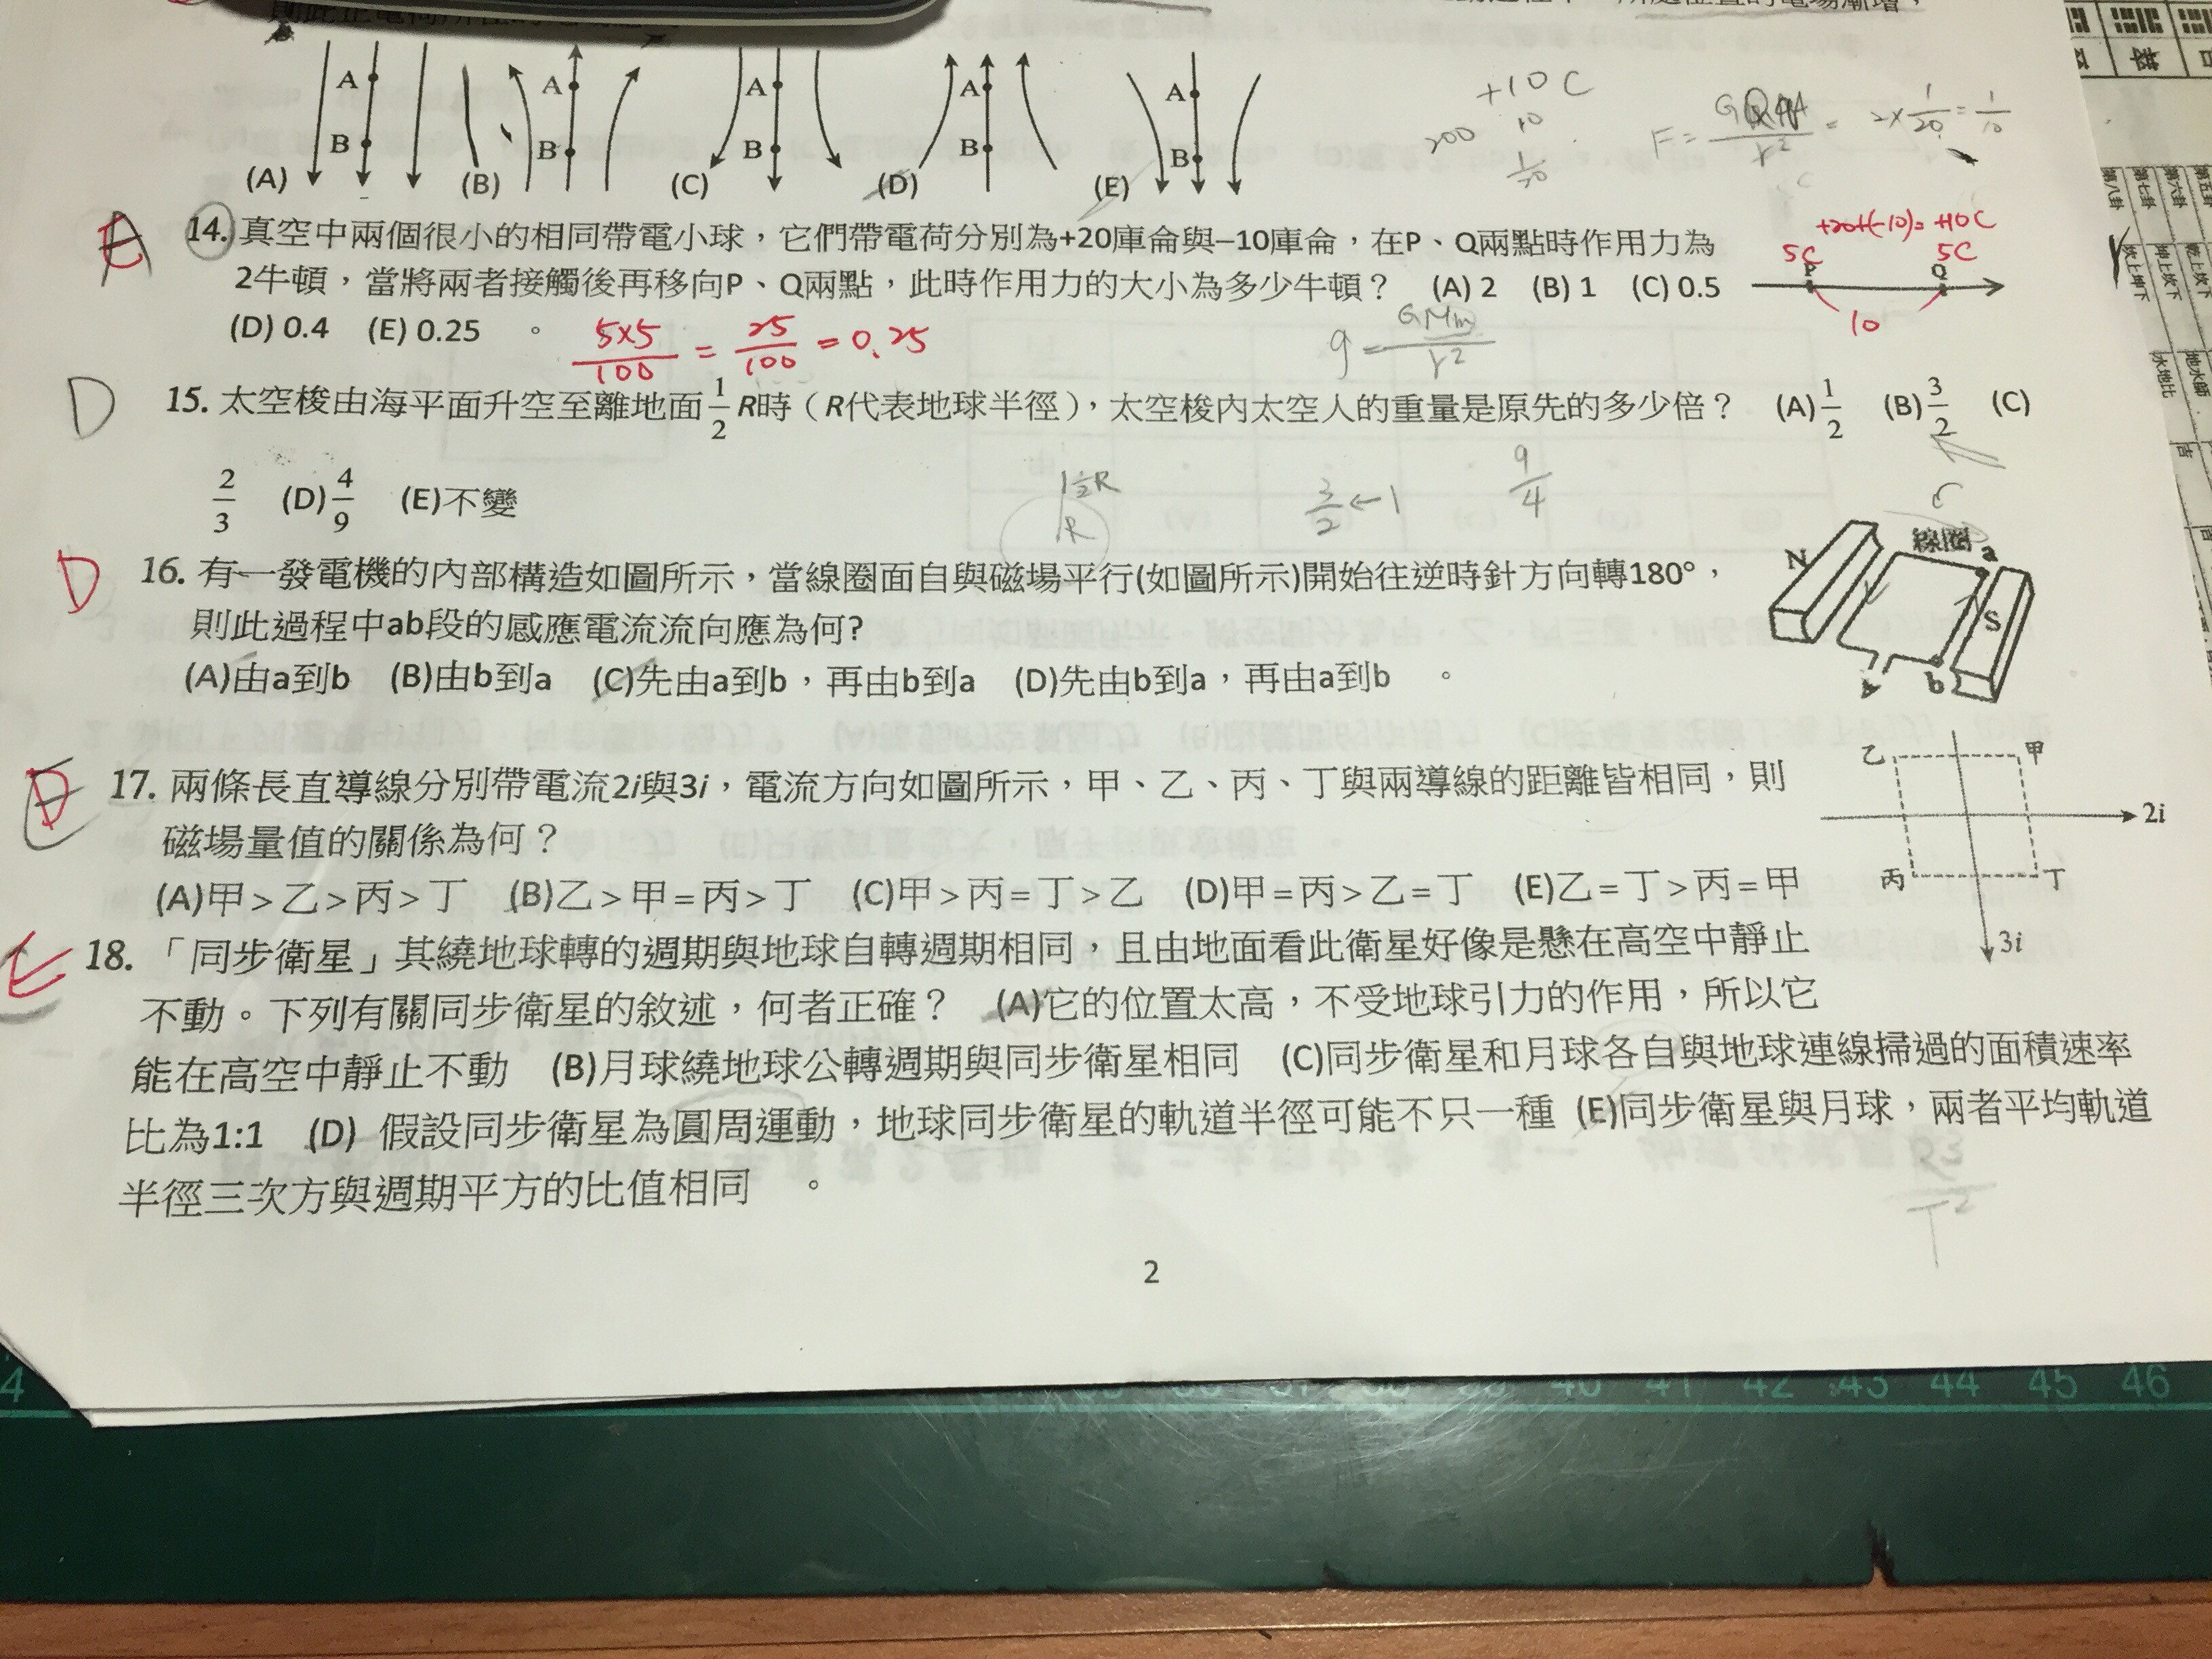 A A A A A
B B B B B
(A) (B) (C) (D) (E)
+10 C
200 10
F = = 2× 1/20 = 1/10
E 14. 真空中兩個很小的相同帶電小球，它們帶電荷分別為+20庫侖與–10庫侖，在P、Q兩點時作用力為
2牛頓，當將兩者接觸後再移向P、Q兩點，此時作用力的大小為多少牛頓？ (A) 2 (B) 1 (C) 0.5
(D) 0.4 (E) 0.25 。
5×5/100 = 25/100 = 0.25
+20+(-10)= +10C
5C 5C
P Q
10
g = GMm/r²
D 15. 太空梭由海平面升空至離地面1/2 R時（R代表地球半徑），太空梭內太空人的重量是原先的多少倍？ (A)1/2 (B)3/2 (C)
2/3 (D)4/9 (E)不變
1½R
R
3/2 ← 1
9/4
D 16. 有一發電機的內部構造如圖所示，當線圈面自與磁場平行(如圖所示)開始往逆時針方向轉180°，
則此過程中ab段的感應電流流向應為何?
(A)由a到b (B)由b到a (C)先由a到b，再由b到a (D)先由b到a，再由a到b 。
N 線圈 a
S
b
17. 兩條長直導線分別帶電流2i與3i，電流方向如圖所示，甲、乙、丙、丁與兩導線的距離皆相同，則
磁場量值的關係為何？
(A)甲＞乙＞丙＞丁 (B)乙＞甲＝丙＞丁 (C)甲＞丙＝丁＞乙 (D)甲＝丙＞乙＝丁 (E)乙＝丁＞丙＝甲
乙 甲
2i
丙 丁
3i
E 18. 「同步衛星」其繞地球轉的週期與地球自轉週期相同，且由地面看此衛星好像是懸在高空中靜止
不動。下列有關同步衛星的敘述，何者正確？ (A)它的位置太高，不受地球引力的作用，所以它
能在高空中靜止不動 (B)月球繞地球公轉週期與同步衛星相同 (C)同步衛星和月球各自與地球連線掃過的面積速率
比為1:1 (D) 假設同步衛星為圓周運動，地球同步衛星的軌道半徑可能不只一種 (E)同步衛星與月球，兩者平均軌道
半徑三次方與週期平方的比值相同 。
R3/T2
2
40 41 42 43 44 45 46